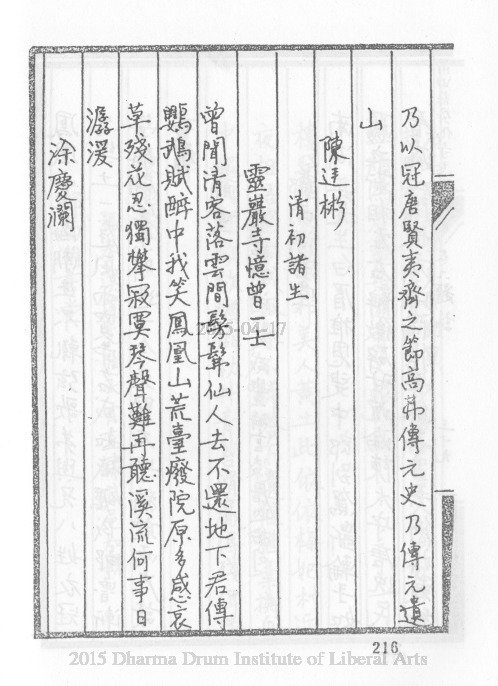 乃以冠唐賢夷齊之節高弗傳元史乃傳元遺
山
陳逹彬
清初諸生
靈巖寺憶曾一士
曾聞清客落雲間髣髴仙人去不還地下君傳
鸚鵡賦醉中我笑鳳凰山荒臺癈院原多感哀
草殘花忍獨攀寂寞琴聲難再聽溪流何事日
潺湲
涂慶瀾
216
2015 Dharma Drum Institute of Liberal Arts